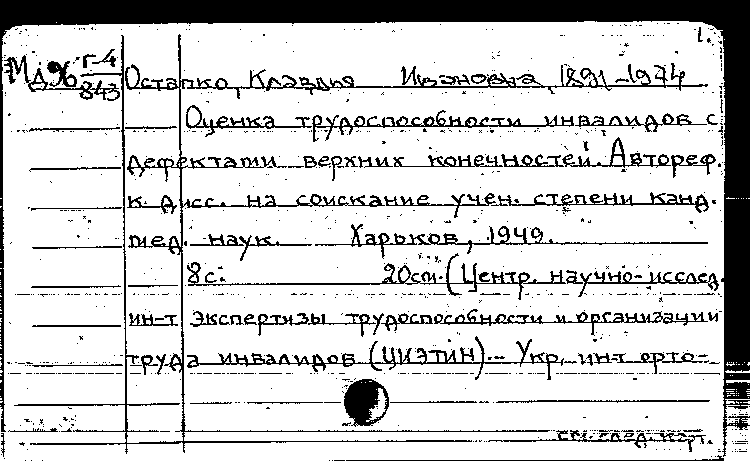 1.
МД96 Г-4/843 Остапко, Клавдия Ивановна, 1891-1974
Оценка трудоспособности инвалидов с
дефектами верхних конечностей. Автореф.
к дисс. на соискание учен. степени канд.
мед. наук. Харьков, 1949.
8 с. 20см. (Центр. научно-исслед.
ин-т экспертизы трудоспособности и организации
труда инвалидов (ЦИЭТИН).- Укр. ин-т орто-
см. след. карт.